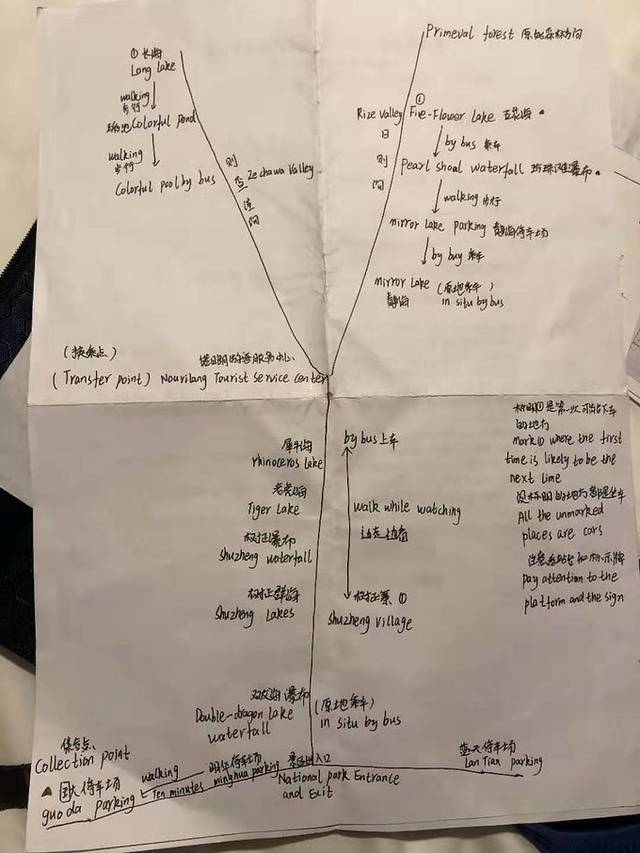 Primeval forest 原始森林
① 长海
Long Lake
walking
步行
Colorful Pond
walking
步行
Colorful pool by bus
则查洼沟
Zechawa Valley
Rize Valley
日则沟
①
Five-Flower Lake 五花海
by bus 乘车
Pearl shoal waterfall 珍珠滩瀑布
walking 步行
mirror Lake parking 镜海停车场
by buy 乘车
mirror Lake (原地乘车)
镜海 in situ by bus
(换乘点)
诺日朗游客服务中心
(Transfer point) Nourilang Tourist Service center
犀牛海
rhinoceros lake
老虎海
Tiger Lake
树正瀑布
Shuzheng waterfall
树正群海
Shuzheng Lakes
by bus 上车
walk while watching
边走边看
树正寨 ①
Shuzheng village
标明①是第一次可能下车
的地方
mark① where the first
time is likely to be the
next time
没标明的地方都是坐车
All the unmarked
places are cars
注意站台和标示牌
pay attention to the
platform and the sign
双龙海瀑布
Double-dragon Lake
waterfall
(原地乘车)
in situ by bus
集合点
Collection point
国大停车场
guo da parking
walking
Ten minutes
明华停车场
minghua parking
景区出入口
National park Entrance
and Exit
蓝天停车场
Lan Tian parking